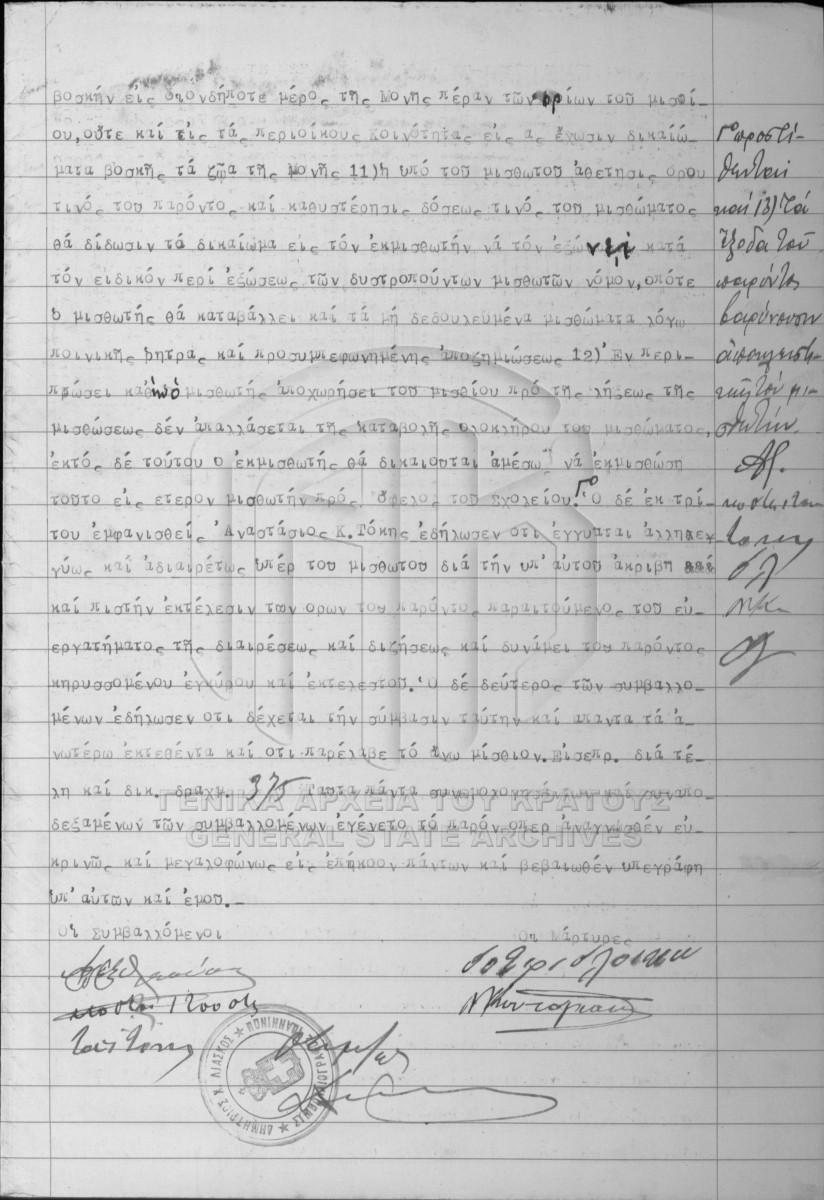 βοσκήν εἰς οἱονδήποτε μέρος τῆς Μονῆς πέραν τῶν ὁρίων τοῦ μισθί-
ου,οὔτε καί εἰς τάς περιοίκους Κοινότητας εἰς ἅς ἔχωσιν δικαιώ-
ματα βοσκῆς τά ζῶα τῆς Μονῆς 11)ἡ ὑπό τοῦ μισθωτοῦ ἀθέτησις ὅρου
τινός τοῦ παρόντος καί καθυστέρησις δόσεως τινός τοῦ μισθώματος
θά δίδωσιν τό δικαίωμα εἰς τόν ἐκμισθωτήν νά τόν ἐξώνει κατά
τόν εἰδικόν περί ἐξώσεως τῶν δυστροπούντων μισθωτῶν νόμον,ὁπότε
ὁ μισθωτής θά καταβάλλει καί τά μή δεδουλευμένα μισθώματα λόγω
ποινικῆς ῥήτρας καί προσυμπεφωνημένης ἀποζημιώσεως 12)Ἐν περι-
πτώσει καθ' ἥν ὁ μισθωτής ἀποχωρήσει τοῦ μισθίου πρό τῆς λήξεως τῆς
μισθώσεως δέν ἀπαλλάσεται τῆς καταβολῆς ὁλοκλήρου τοῦ μισθώματος,
ἐκτός δέ τούτου ὁ ἐκμισθωτής θά δικαιοῦται ἀμέσως νά ἐκμισθώση
τοῦτο εἰς ἕτερον μισθωτήν πρός ὄφελος τοῦ Σχολείου. Ὁ δέ ἐκ τρί-
του ἐμφανισθείς Ἀναστάσιος Κ.Τόκης ἐδήλωσεν ὅτι ἐγγυᾶται ἀλληλεγ-
γύως καί ἀδιαιρέτως ὑπέρ τοῦ μισθωτοῦ διά τήν ὑπ' αὐτοῦ ἀκριβῆ
καί πιστήν ἐκτέλεσιν τῶν ὅρων τοῦ παρόντος παραιτούμενος τοῦ εὐ-
εργατήματος τῆς διαιρέσεως καί διζήσεως καί δυνάμει τοῦ παρόντος
κηρυσσομένου ἐγκύρου καί ἐκτελεστοῦ. Ὁ δέ δεύτερος τῶν συμβαλλο-
μένων ἐδήλωσεν ὅτι δέχεται τήν σύμβασιν ταύτην καί ἅπαντα τά ἀ-
νωτέρω ἐκτεθέντα καί ὅτι παρέλαβε τό ἄνω μίσθιον.Εἰσεπρ. διά τέ-
λη καί δικ. δραχμ. 375 Ταῦτα πάντα συνομολογησάντων καί συναπο-
δεξαμένων τῶν συμβαλλομένων ἐγένετο τό παρόν ὅπερ ἀναγνωσθέν εὐ-
κρινῶς καί μεγαλοφώνως εἰς ἐπήκοον πάντων καί βεβαιωθέν ὑπεγράφη
ὑπ' αὐτῶν καί ἐμοῦ.-
Οἱ Συμβαλλόμενοι
Οἱ Μάρτυρες
Γ° προστί-
θενται
καί 13) τά
ἔξοδα τοῦ
παρόντος
βαρύνουσιν
ἀποκλειστι-
κῶς τόν μι-
σθωτήν.
ΓΕΝΙΚΑ ΑΡΧΕΙΑ ΤΟΥ ΚΡΑΤΟΥΣ
GENERAL STATE ARCHIVES
ΔΗΜΗΤΡΙΟΣ Χ. ΛΙΑΣΚΟΣ